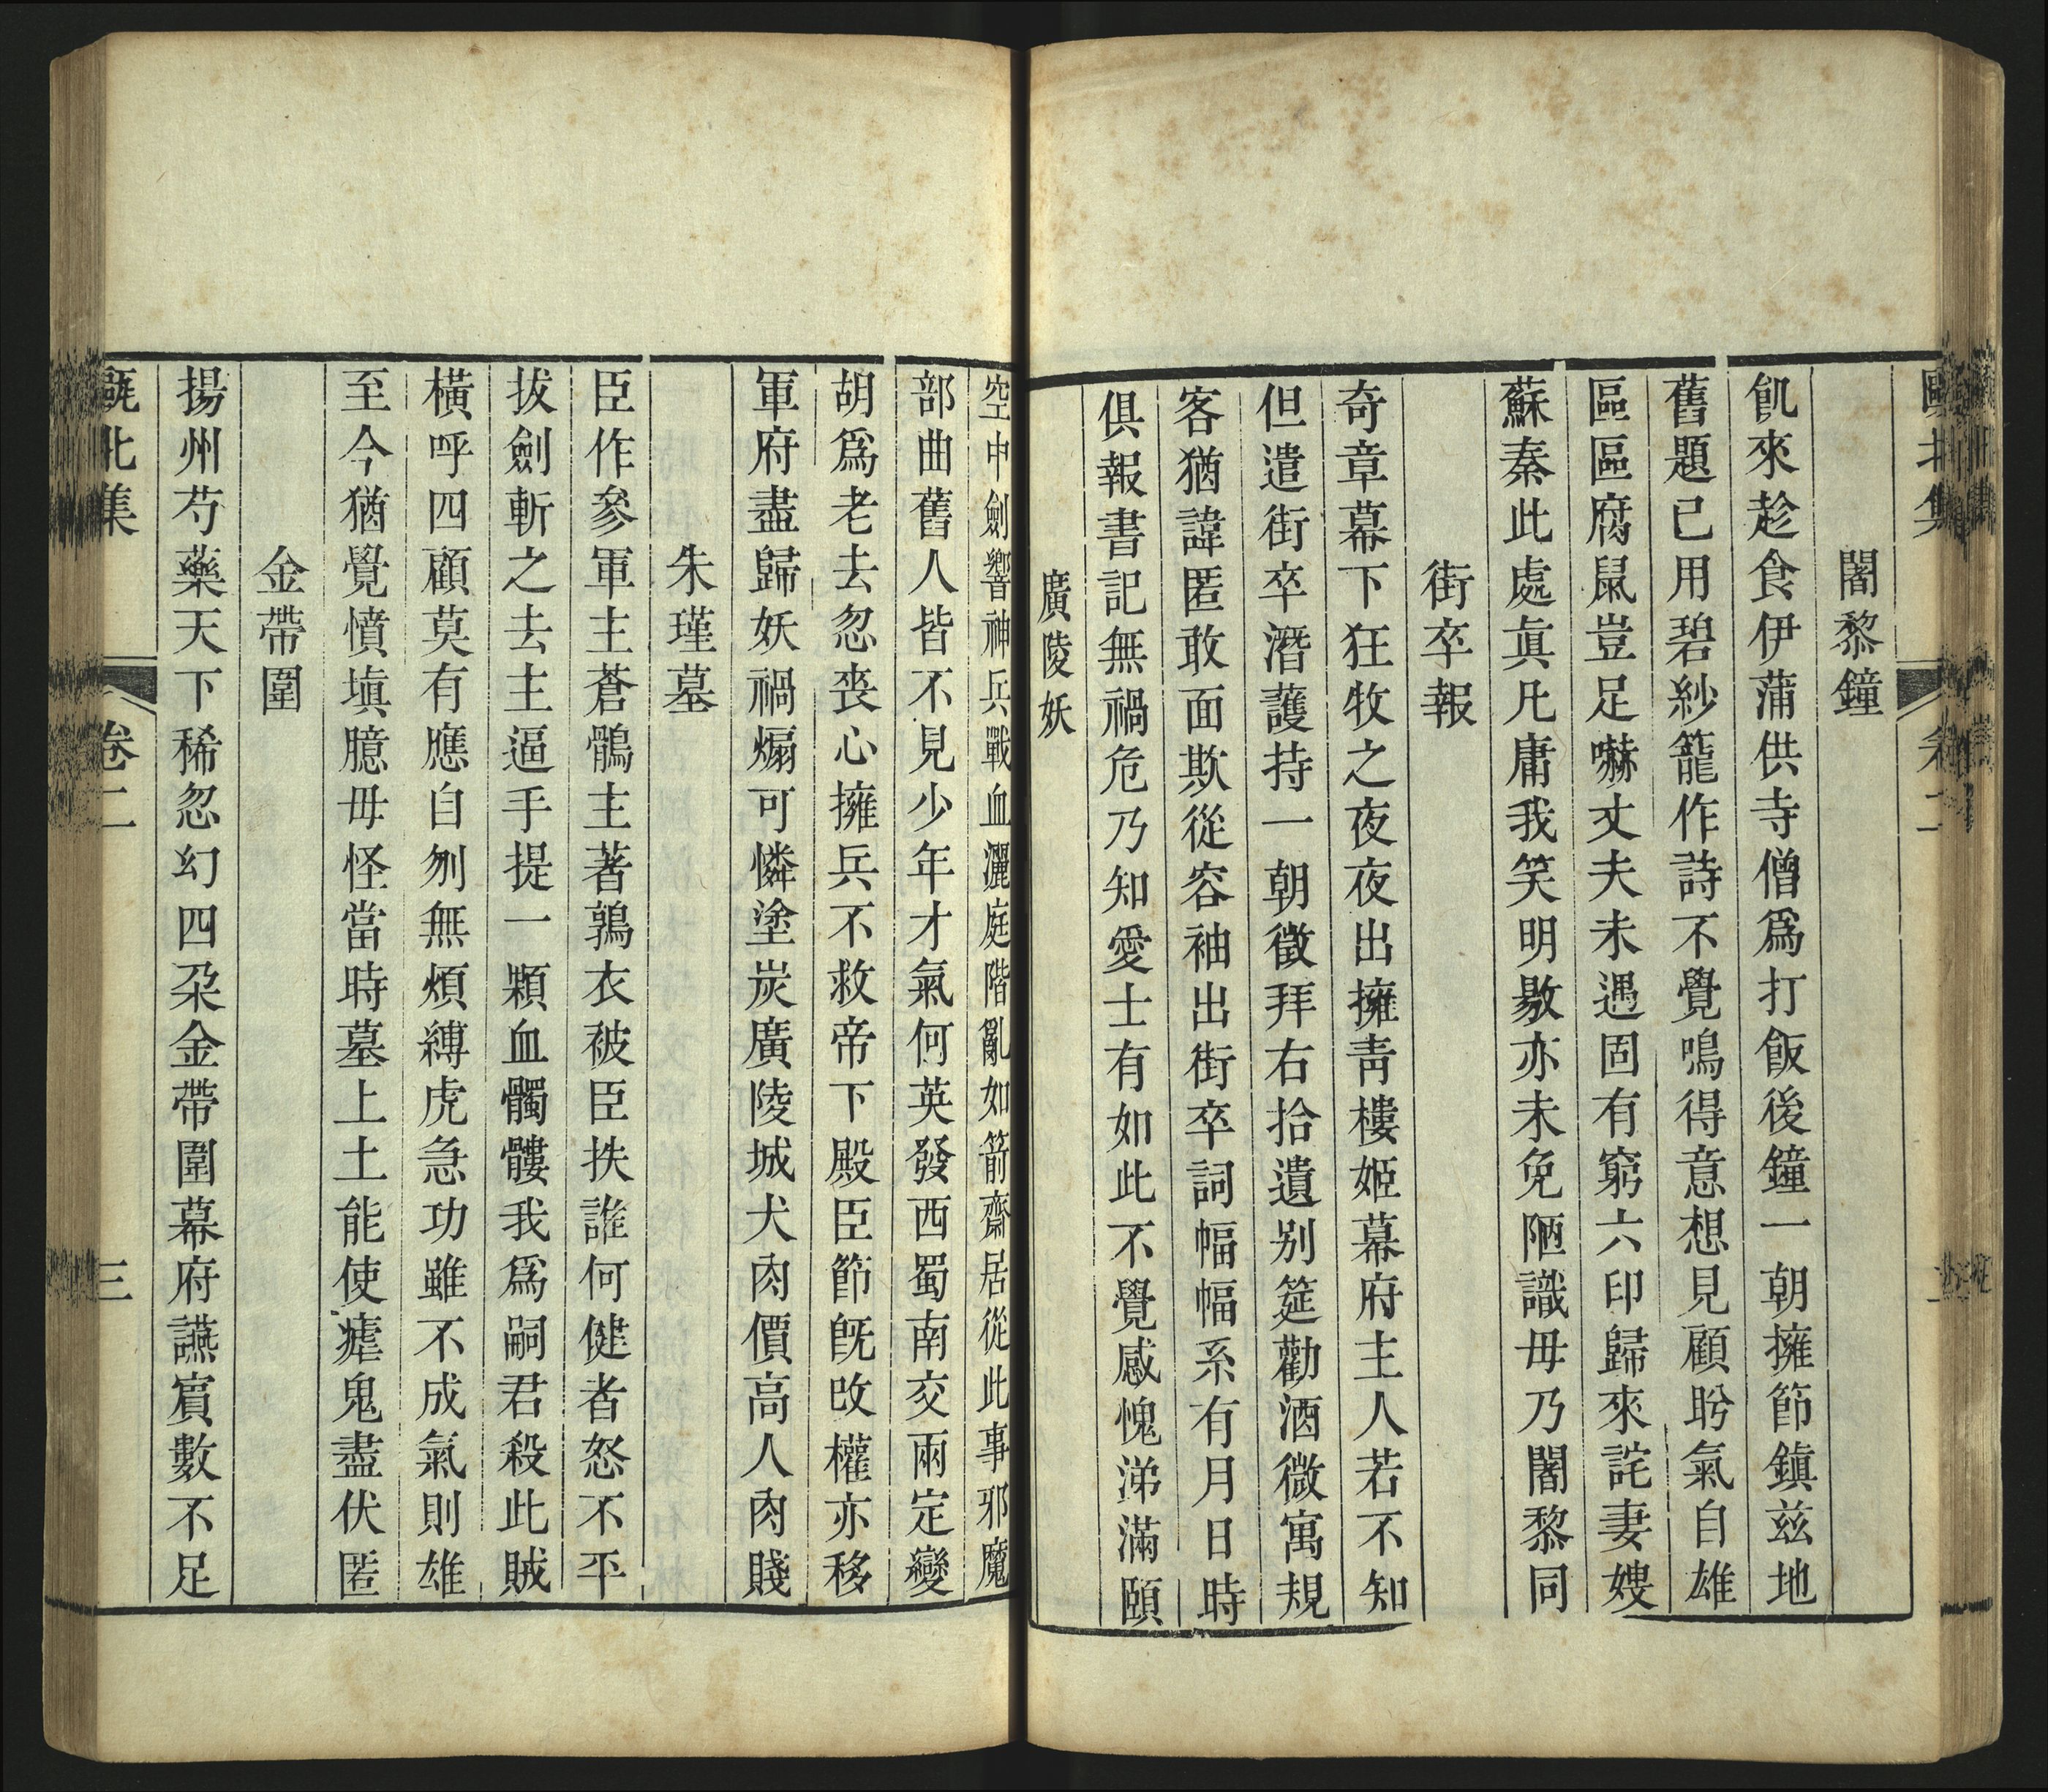 甌北集 卷二
闍黎鐘
飢來趁食伊蒲供寺僧爲打飯後鐘一朝擁節鎭兹地
舊題已用碧紗籠作詩不覺鳴得意想見顧盻氣自雄
區區腐鼠豈足嚇丈夫未遇固有窮六印歸來詫妻嫂
蘇秦此處眞凡庸我笑明敭亦未免陋識毋乃闍黎同
街卒報
奇章幕下狂牧之夜夜出擁靑樓姬幕府主人若不知
但遣街卒潛護持一朝徵拜右拾遺别筵勸酒微寓規
客猶諱匿敢面欺從容袖出街卒詞幅幅系有月日時
俱報書記無禍危乃知愛士有如此不覺感愧涕滿頤
廣陵妖
空中劍響神兵戰血灑庭階亂如箭齋居從此事邪魔
部曲舊人皆不見少年才氣何英發西蜀南交兩定變
胡爲老去忽喪心擁兵不救帝下殿臣節旣改權亦移
軍府盡歸妖禍煽可憐塗炭廣陵城犬肉價高人肉賤
朱瑾墓
臣作參軍主蒼鶻主著鶉衣被臣抶誰何健者怒不平
拔劍斬之去主逼手提一顆血髑髏我爲嗣君殺此賊
橫呼四顧莫有應自刎無煩縛虎急功雖不成氣則雄
至今猶覺憤塡臆毋怪當時墓上土能使瘧鬼盡伏匿
金帶圍
揚州芍藥天下稀忽幻四朶金帶圍幕府讌賓數不足
甌北集 卷二 三